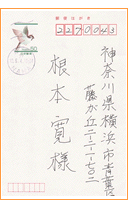 郵便はがき
2270043
神奈川県横浜市青葉区
藤が丘二-二-一-一〇二
根本寛様